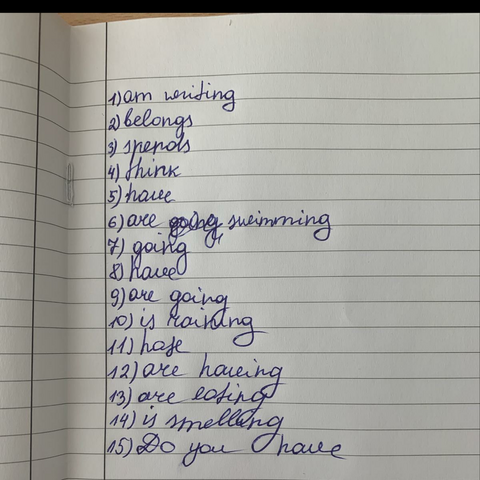 1) am writing
2) belongs
3) spends
4) think
5) have
6) are swimming
7) going
8) have
9) are going
10) is raining
11) hate
12) are having
13) are eating
14) is smelling
15) Do you have